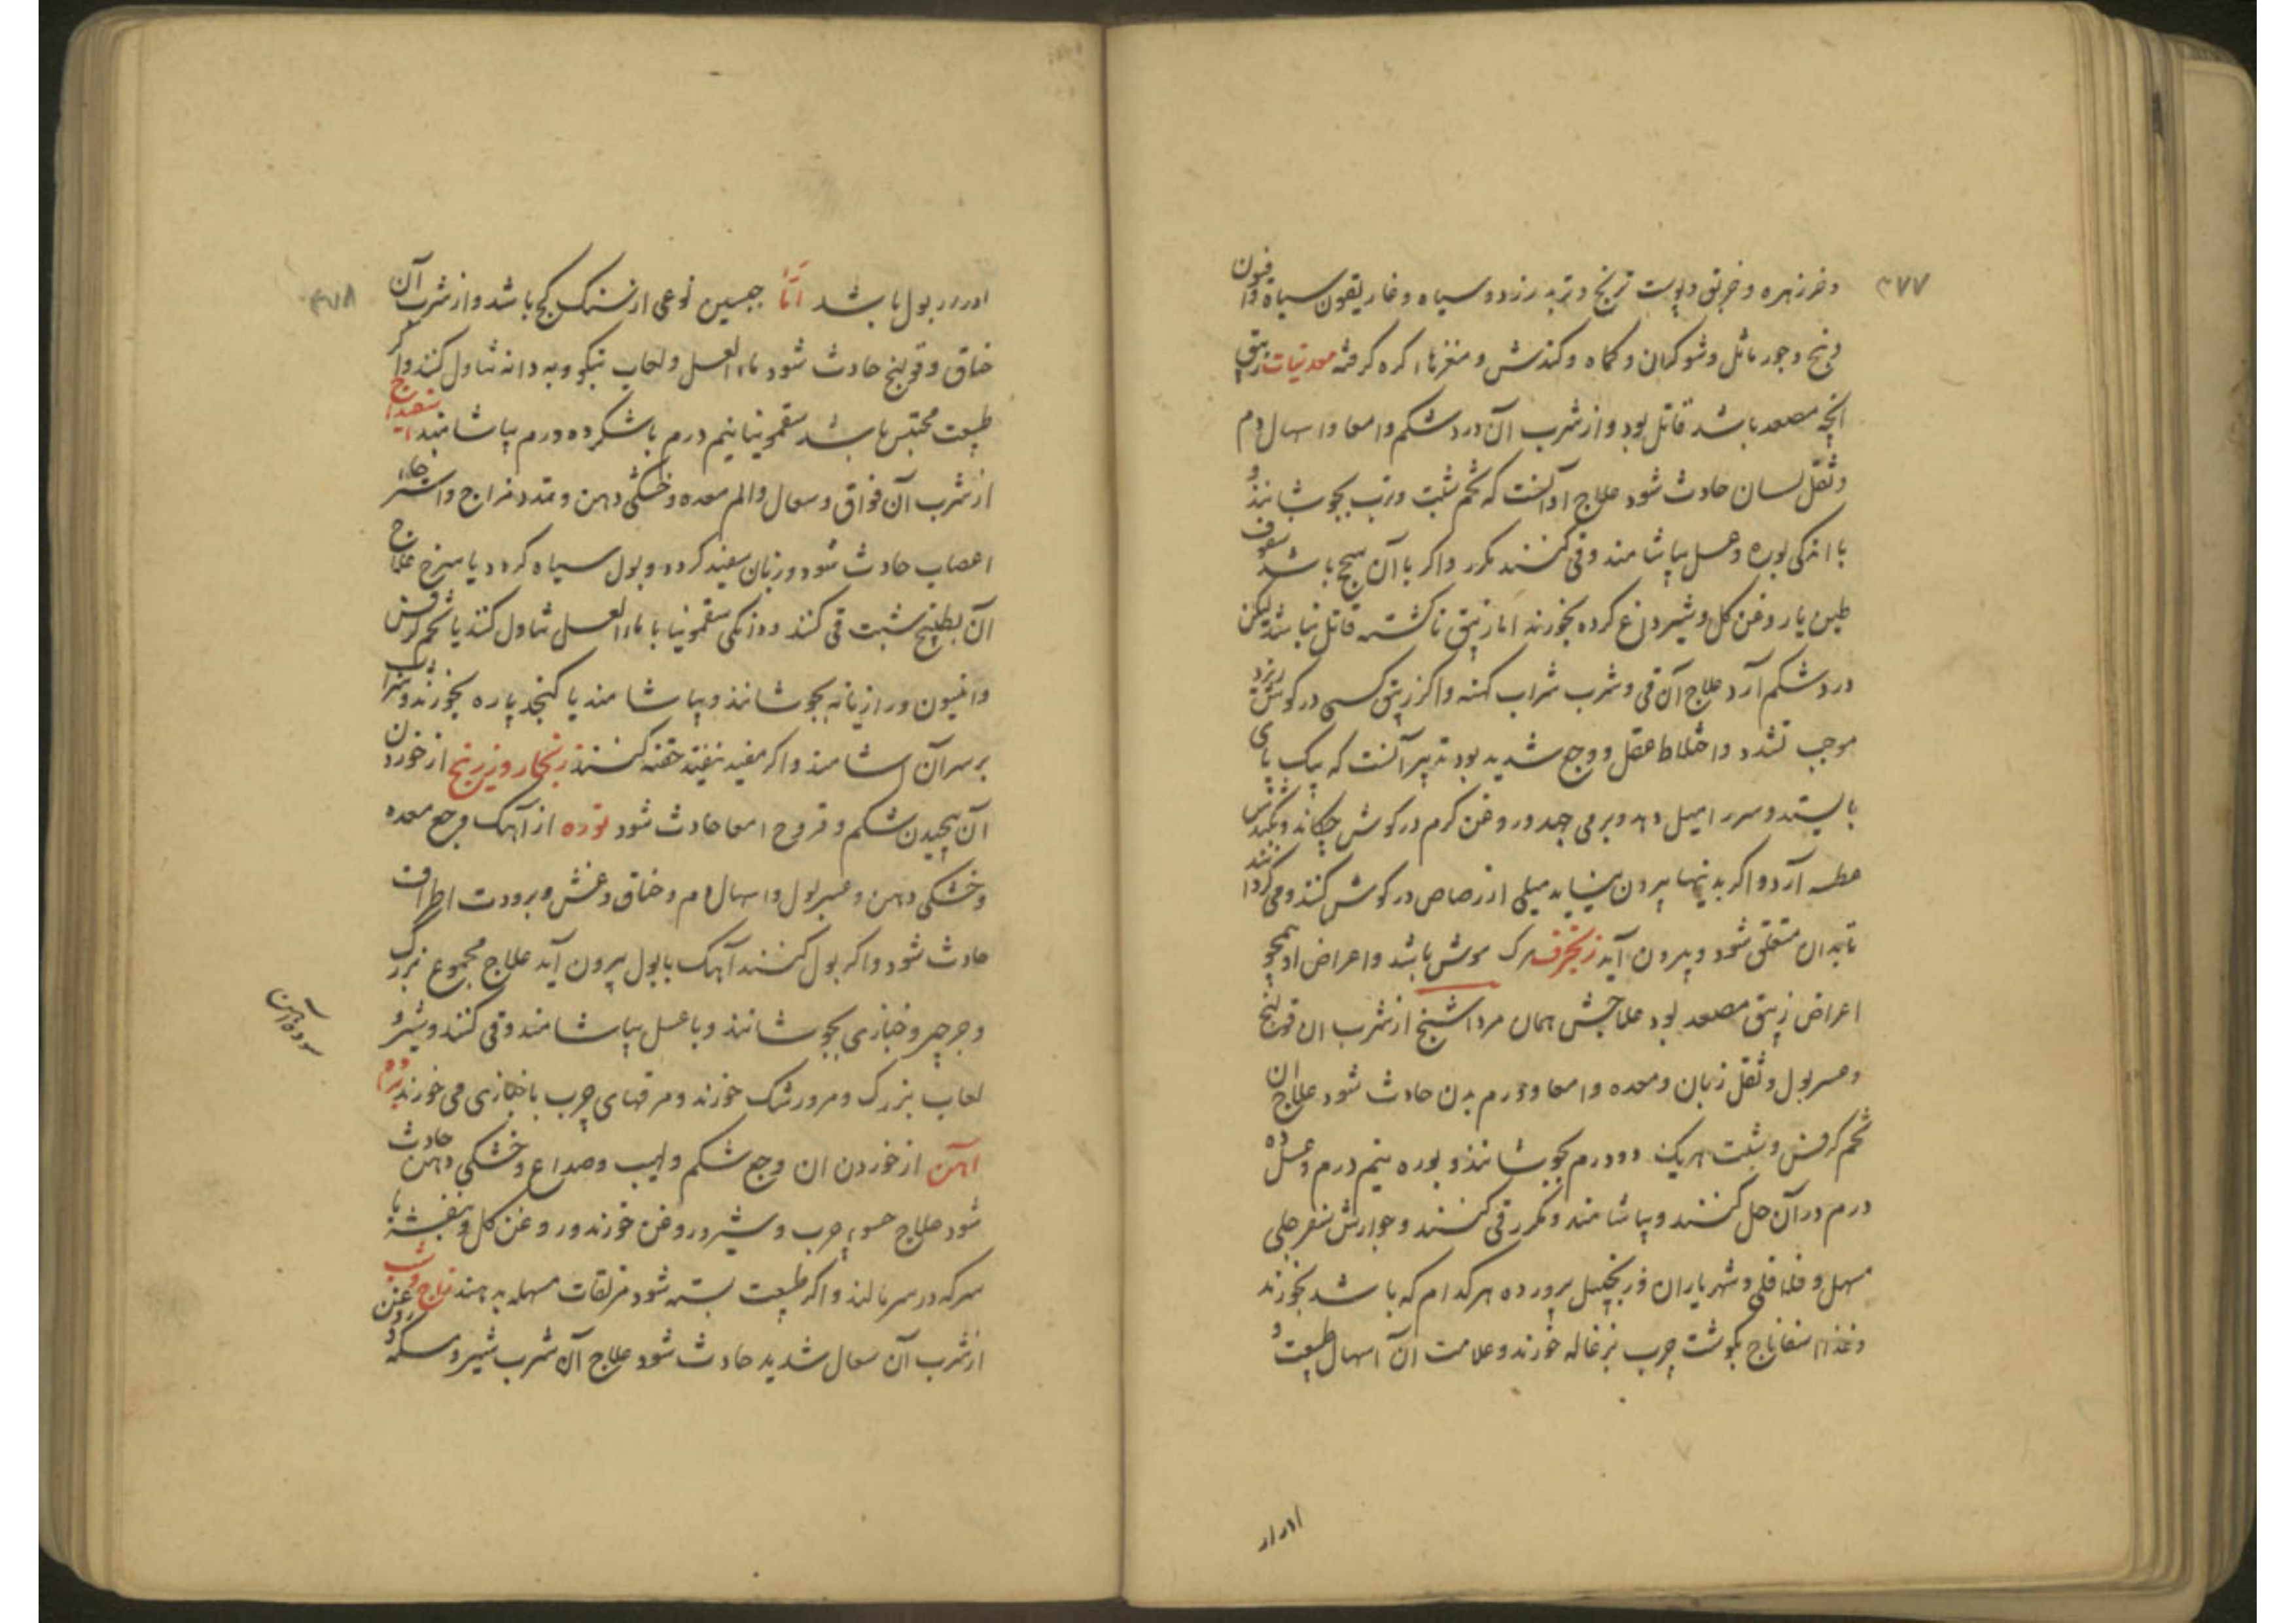 ۳۷۷
و خرزهره و خربق و پوست ترنج و تربد زرد و سیاه و غاریقون سیاه و افیون
و بنج و جوز ماثل و شوکران و کماه و کندش و مغزهاء کره گرفته معدنیات زیبق
آنچه مصعد باشد قاتل بود و از شرب آن درد شکم و امعا و اسهال دم
و ثقل لسان حادث شود علاج او آنست که تخم شبت و ترب بجوشانند و
با اندکی بوره و عسل بیاشامند و قی کنند مکرر و اکر با آن سحج باشد سفوف
طین با روغن کل و شیر داغ کرده بخورند اما زیبق ناکشته قاتل نباشد لیکن
درد شکم آرد علاج آن قی و شرب شراب کهنه و اکر زیبق کسی در کوش ریزد
موجب تشدد و اختلاط عقل و وجع شدید بود تدبیر آنست که بیک پای
بایستد و سر را میل دهد و برمی جهد و روغن کرم در کوش چکاند و بکندش
عطسه آرد و اکر بدینها بیرون نیاید میلی از رصاص در کوش کنند و می کردانند
تا بدان متعلق شود و بیرون آید زنجرف مرک موش باشد و اعراض او همچو
اعراض زیبق مصعد بود علاجش همان مرداسنج از شرب ان قولنج
و عسر بول و ثقل زبان و معده و امعا و ورم بدن حادث شود علاج ان
تخم کرفس و شبت هریک دو درم بجوشانند و بوره نیم درم و عسل ده
درم در آن حل کنند و بیاشامند و مکرر قی کنند و جوارش سفرجلی
مسهل و فلافلی و شهریاران و زنجبیل پرورده هر کدام که باشد بخورند
و غذا اسفاناج بکوشت چرب بزغاله خورند و علامت آن اسهال طبیعت و
ادرار
ادرار بول باشد اما جبسین نوعی از سنک کچ باشد و از شرب آن
خناق و قولنج حادث شود ماء العسل و لعاب بنکو و به دانه تناول کنند و اکر
طبیعت محتبس باشد سقمونیا نیم درم با شکر ده درم بیاشامند اسفیداج
از شرب آن فواق و سعال و الم معده و خشکی دهن و تمدد مزاج و استرخاء
اعصاب حادث شود و زبان سفید کردد و بول سیاه کردد یا سرخ علاج
آن بطبیخ شبت قی کنند و دانکی سقمونیا با ماء العسل تناول کنند یا تخم کرفس
و انیسون و رازیانه بجوشانند و بیاشامند یا کنجد پاره بخورند و شراب
بر سر آن آشامند و اکر مفید نیفتد حقنه کنند زنجار و زرنیخ از خوردن
آن پیچیدن شکم و قروح امعا حادث شود نوره از آهک وجع معده
و خشکی دهن و عسر بول و اسهال دم و خناق و غش و برودت اطراف
حادث شود و اکر بول کنند آهک با بول بیرون آید علاج مجموع بزرک
و جرجیر و خبازی بجوشانند و با عسل بیاشامند و قی کنند و شیر و
لعاب بزرک و مرورشک خورند و مرقهای چرب با خبازی می خورند براده
آهن از خوردن ان وجع شکم و لهیب و صداع و خشکی دهن حادث
شود علاج حسوء چرب و شیر و روغن خورند و روغن کل و بنفشه با
سرکه در سر مالند و اکر طبیعت بسته شود مزلقات مسهله بدهند زاج و شب
از شرب آن سعال شدید حادث شود علاج آن شرب شیر و مسکه و روغن
سوده آهن